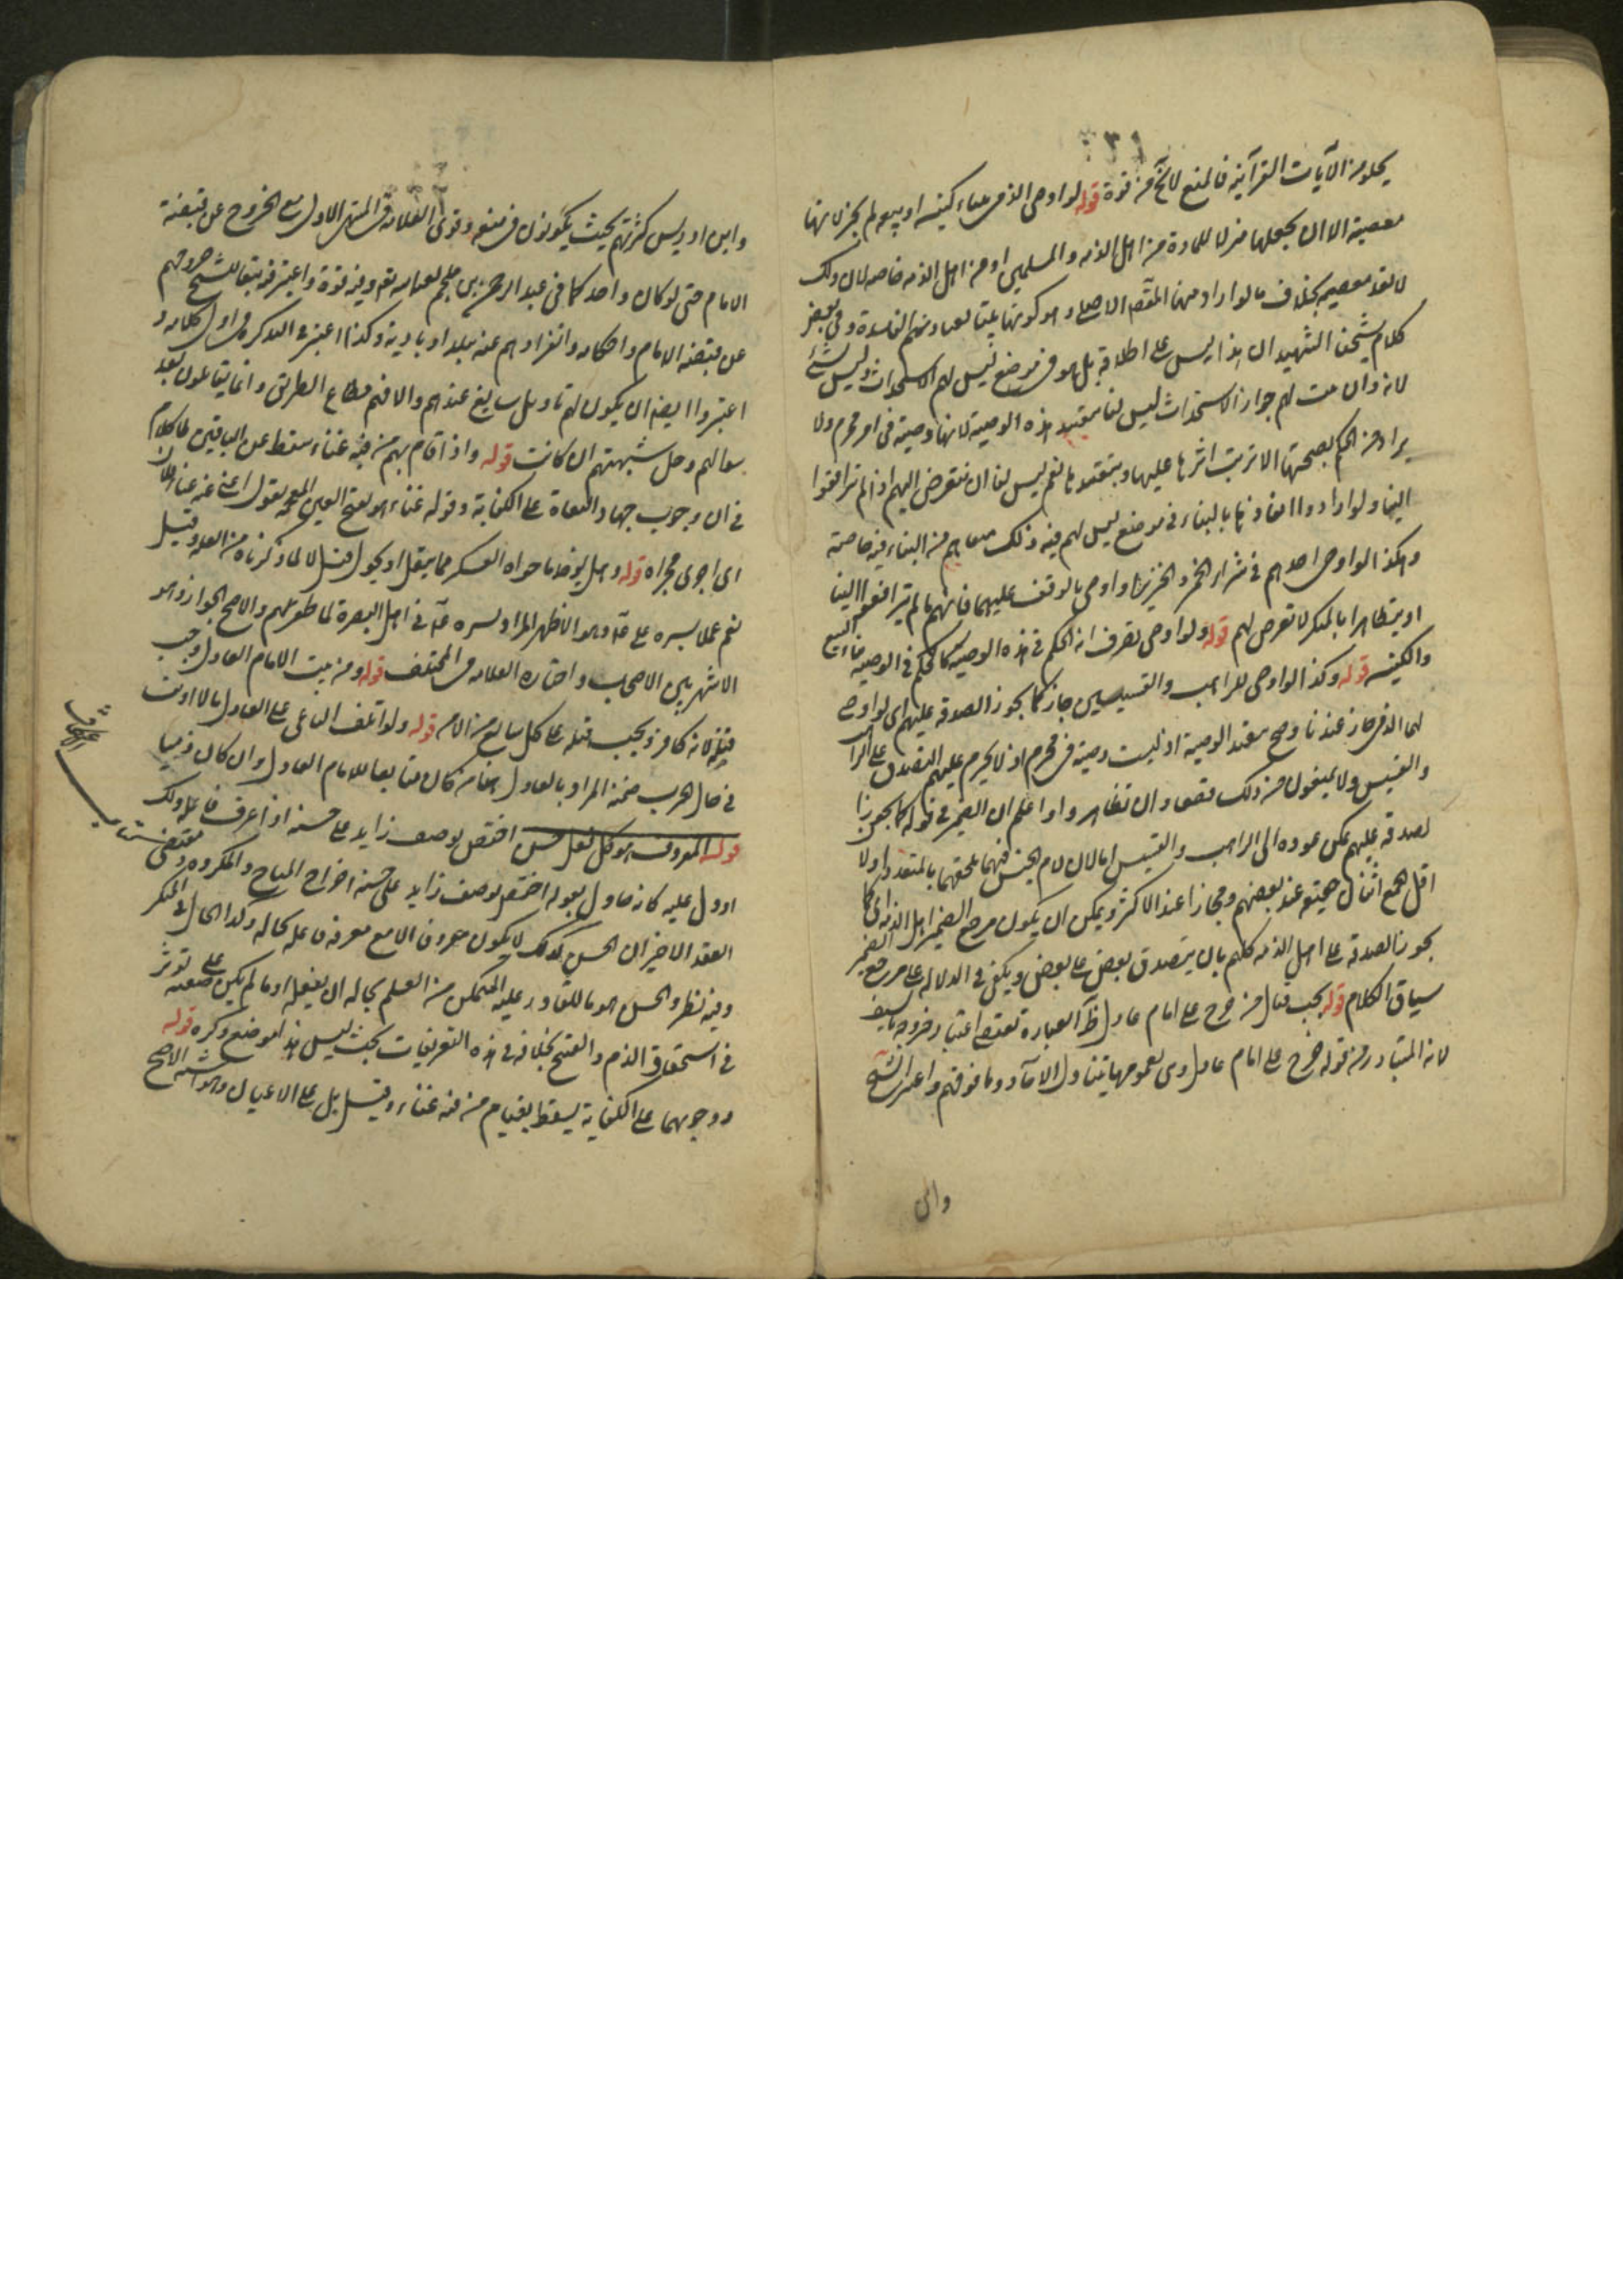 يخلو من الآيات القرآنية فالمنع لا يخ من قوة قوله لو اوصى الذمي ببناء كنيسة او بيعة لم يجز لانها
معصية الا ان يجعلها منزلا للمارة من اهل الذمة والمسلمين او من اهل الذمة خاصة لان ذلك
لا يعد معصية بخلاف ما لو اراد منها المقصد الاصلي وهو كونها بيتا لعباداتهم الفاسدة وفي بعض
كلام شيخنا الشهيد ان هذا ليس على اطلاقه بل هو في موضع ليس لهم الاستحداث وليس بشئ
لانه وان ثبت لهم جواز الاستحداث ليس لنا تنفيذ هذه الوصية لانها وصية في امر محرم ولا
يراد من الحكم بصحتها الا ترتب اثرها عليها وتنفيذها نعم ليس لنا ان نتعرض اليهم اذا لم يترافعوا
الينا ولو ارادوا انفاذها بالبناء في موضع ليس لهم فيه ذلك منعناهم من البناء فيه خاصة
وهكذا لو اوصى احدهم في شراء الخمر والخنزير او اوصى بالوقف عليهما فانهم ما لم يترافعوا الينا
او يتظاهروا بالمنكر لا تعرض لهم قوله ولو اوصى بصرف الحكم في هذه الوصية كالحكم في الوصية ببناء البيع
والكنيسة قوله وكذا لو اوصى للراهب والقسيسين جاز كما يجوز الصدقة عليهم اي لو اوصى
لهما الذمي جاز عندنا وصح تنفيذ الوصية اذ ليست وصية في محرم اذ لا يحرم عليهم التصدق على الراهب
والقسيس ولا يمنعون من ذلك وان تظاهروا واعلم ان الضمير في قوله كما يجوز
الصدقة عليهم يمكن عوده الى الراهب والقسيس اما لان لام الجنس فيهما يلحقهما بالمتعدد او لان
اقل الجمع اثنان حقيقة عند بعضهم ومجازا عند الاكثر ويمكن ان يكون مرجع الضمير اهل الذمة اي كما
يجوز الصدقة على اهل الذمة كلهم بان يتصدق بعض على بعض ويكفي في الدلالة على مرجع الضمير
سياق الكلام قوله يجب قتال من خرج على امام عادل ظاهر العبارة تقتضي اعتبار خروجه بالسيف
لانه المتبادر من قوله خرج على امام عادل وهي بعمومها يتناول الآحاد وما فوقهم واعتبر الشيخ
وابن
وابن ادريس كثرتهم بحيث يكونون في منعة وقوى العلامة في المنتهى الاول مع الخروج عن قبضة
الامام حتى لو كان واحدا كما في عبد الرحمن بن ملجم وفيه قوة واعتبر فريق تبعا للشيخ خروجهم
عن قبضة الامام واحكامه وانفرادهم عنه ببلد او بادية وكذا اعتبر في التذكرة في اول كلامه و
اعتبروا ايضا ان يكون لهم تاويل سايغ عندهم والا فهم قطاع الطريق وانما يقاتلون بعد
سوالهم وحل شبهتهم ان كانت قوله واذا قام بهم من فيه غناء سقط عن الباقين لا كلام
في ان وجوب جهاد البغاة على الكفاية وقوله غناء هو بفتح الغين المعجمة يقول اغنى عنه غناء فلان
اي اجزى مجزاه قوله وهل يؤخذ ما حواه العسكر مما ينقل او يحول قيل لا لما ذكرناه من العلة وقيل
نعم عملا بسيرة علي ع وهو الاظهر المراد بسيرة ع في اهل البصرة لما ظفر بهم والاصح الجواز وهو
الاشهر بين الاصحاب واختاره العلامة في المختلف قوله ومن سب الامام العادل وجب
قتله لانه كافر ويجب قتله على كل سامع مع الامن قوله ولو اتلف الباغي على العادل مالا او نفسا
في حال الحرب ضمنه المراد بالعادل هنا من كان متابعا للامام العادل وان كان ذميا
قوله المعروف هو كل فعل حسن اختص بوصف زايد على حسنه اذا عرف فاعله ذلك
او دل عليه كانه حاول بقوله اختص بوصف زايد على حسنه اخراج المباح والمكروه ومقتضى
القيد الاخير ان الحسن كذلك لا يكون معروفا الا مع معرفة فاعله بحاله وكذا الحال في المنكر
وفيه نظر والحسن هو ما للقادر عليه المتمكن من العلم بحاله ان يفعله او ما لم يكن على صفة تؤثر
في استحقاق الذم والقبيح بخلافه وفي هذه التعريفات بحث ليس هذا موضع ذكره قوله
ووجوبهما على الكفاية يسقط بقيام من فيه غناء وقيل بل على الاعيان وهو اشبه الاصح